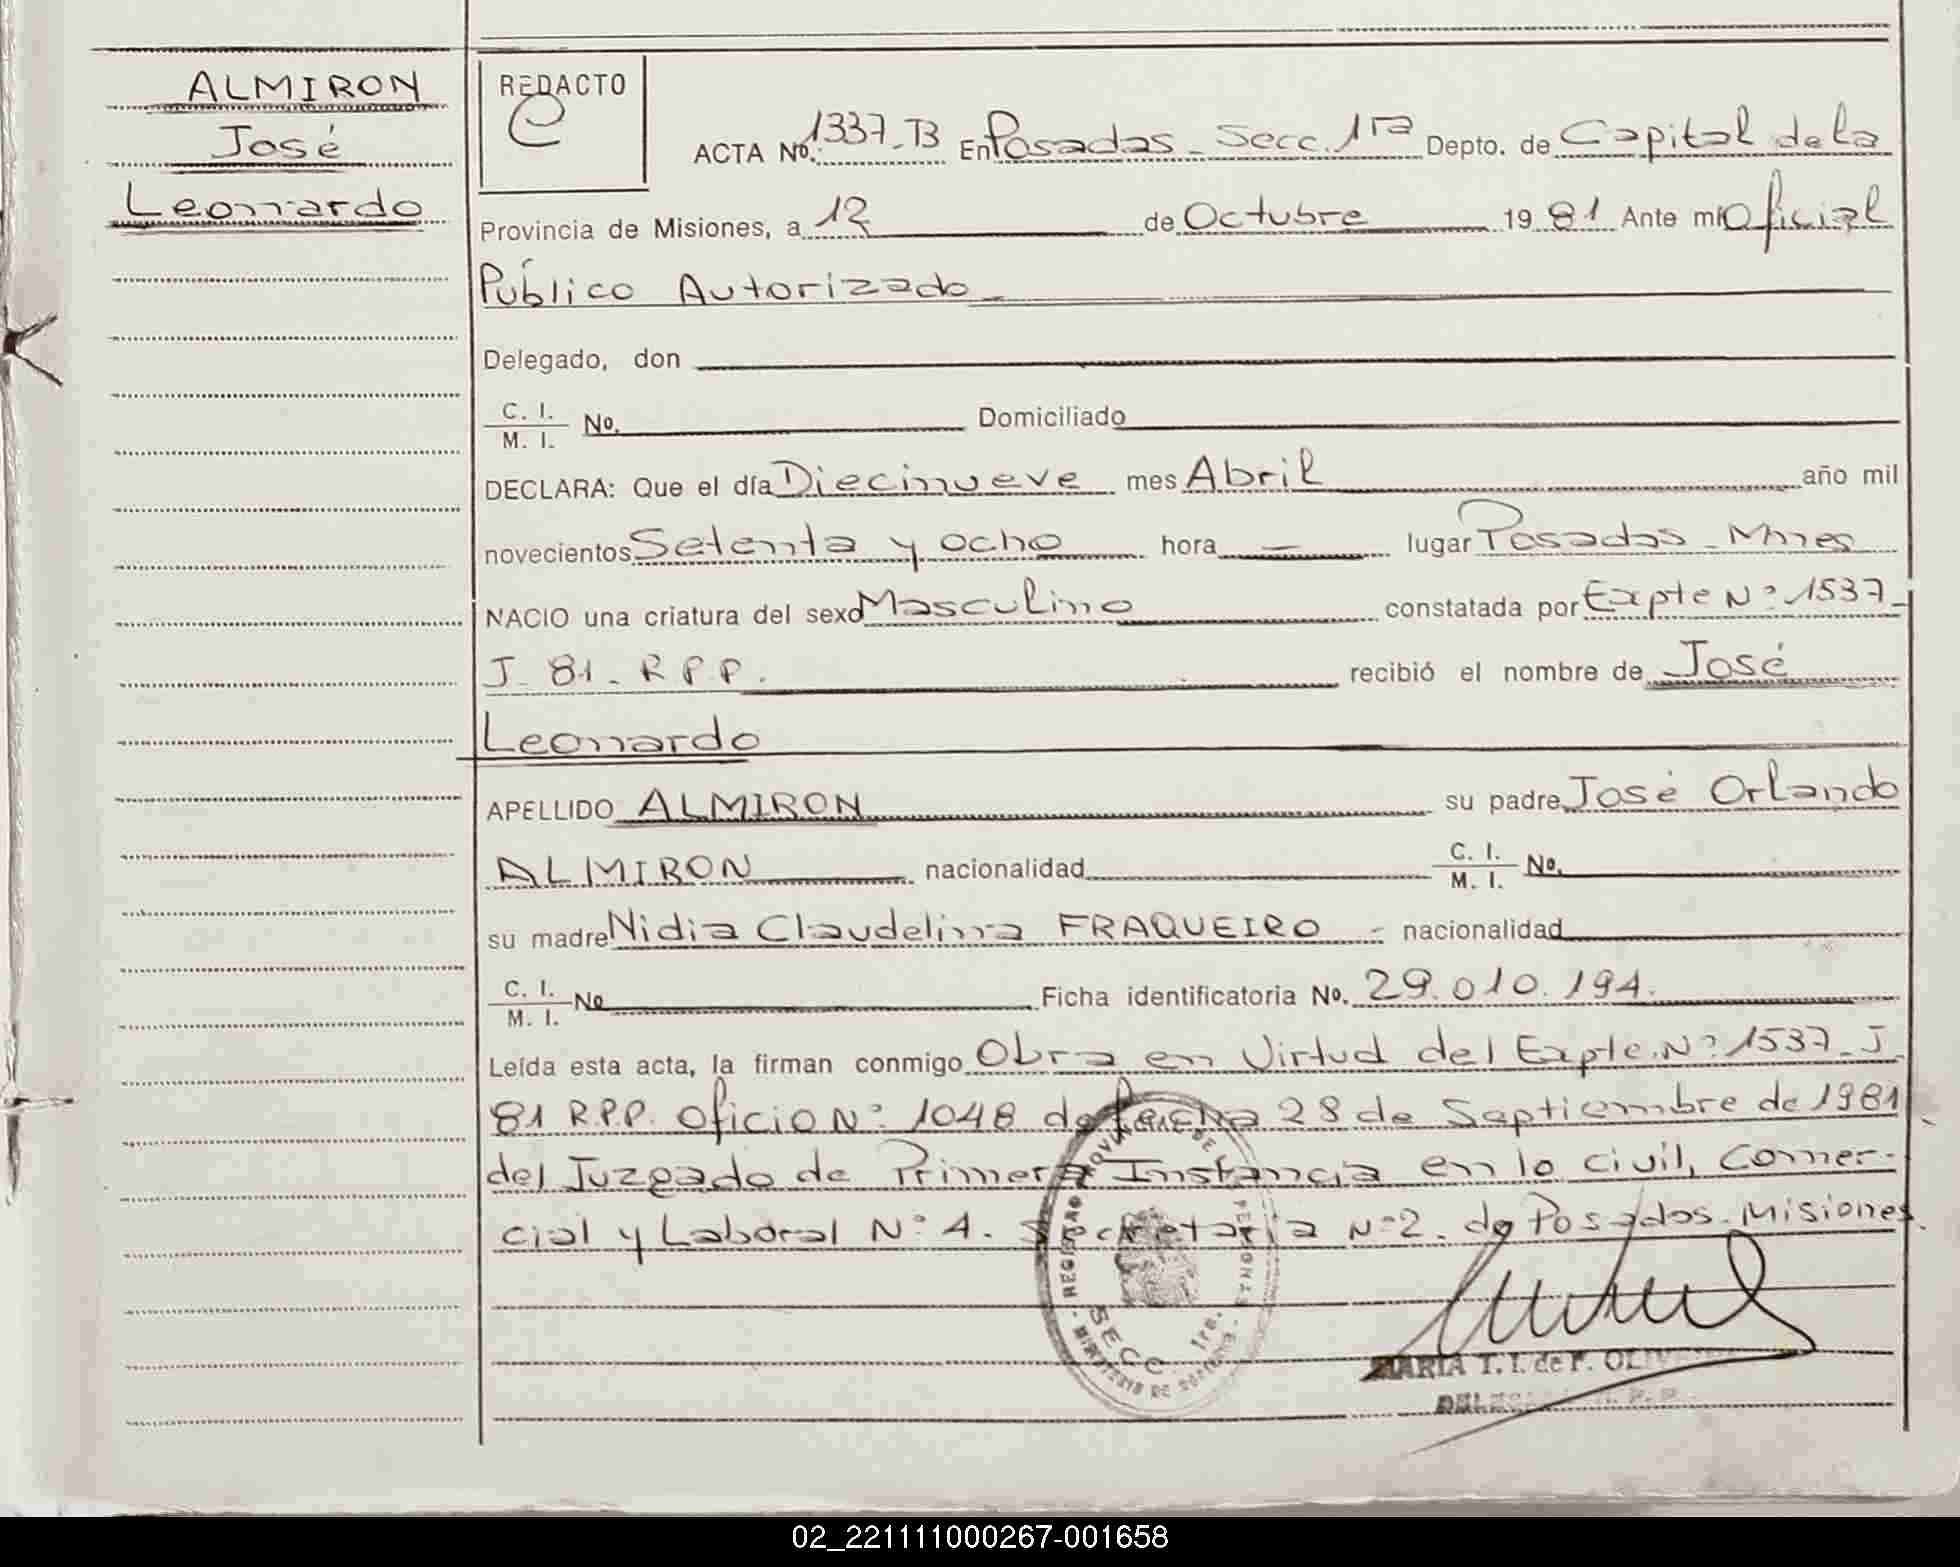 ALMIRON
José
Leonardo
REDACTO
e
ACTA No. 1337-B En Posadas - Secc. 1ra Depto. de Capital de la
Provincia de Misiones, a 12 de Octubre 1981 Ante mí Oficial
Público Autorizado -
Delegado, don
C. I.
M. I. No. Domiciliado
DECLARA: Que el día Diecinueve mes Abril año mil
novecientos Setenta y ocho hora - lugar Posadas - Mnes
NACIO una criatura del sexo Masculino constatada por Expte Nº 1537-
J - 81 - R P.P. recibió el nombre de José
Leonardo
APELLIDO ALMIRON su padre José Orlando
ALMIRON nacionalidad C. I.
M. I. No.
su madre Nidia Claudelina FRAQUEIRO - nacionalidad
C. I.
M. I. No Ficha identificatoria No. 29.010.194.
Leída esta acta, la firman conmigo Obra en Virtud del Expte. Nº 1537-J
81 R.P.P. Oficio Nº 1048 de fecha 28 de Septiembre de 1981
del Juzgado de Primera Instancia en lo civil, Comer-
cial y Laboral Nº 4. Secretaria Nº 2. de Posadas - Misiones.
REGISTRO PROVINCIAL DE
SECC 1ra.
MINISTERIO DE
MARIA T. I. de F.
02_221111000267-001658